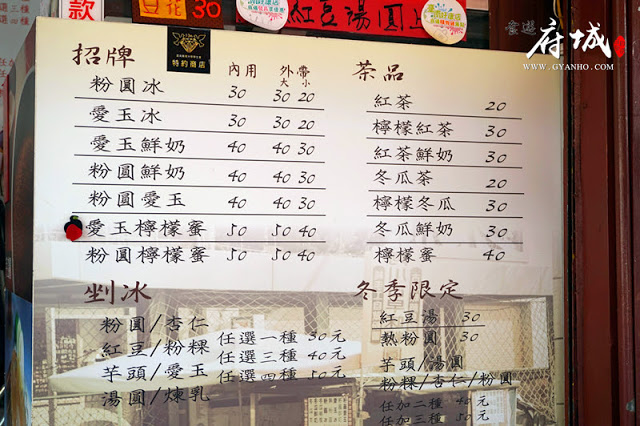 款
豆花 30
紅豆湯圓上
府城
WWW.GYANHO.COM
招牌
特約商店
內用 外帶
大 小
粉圓冰 30 30 20
愛玉冰 30 30 20
愛玉鮮奶 40 40 30
粉圓鮮奶 40 40 30
粉圓愛玉 40 40 30
愛玉檸檬蜜 50 50 40
粉圓檸檬蜜 50 50 40
茶品
紅茶 20
檸檬紅茶 30
紅茶鮮奶 30
冬瓜茶 20
檸檬冬瓜 30
冬瓜鮮奶 30
檸檬蜜 40
剉冰
粉圓/杏仁
紅豆/粉粿
芋頭/愛玉
湯圓/煉乳
任選一種 30元
任選三種 40元
任選四種 50元
冬季限定
紅豆湯 30
熱粉圓 30
芋頭/湯圓
粉粿/杏仁/粉圓
任加二種 40元
任加三種 50元